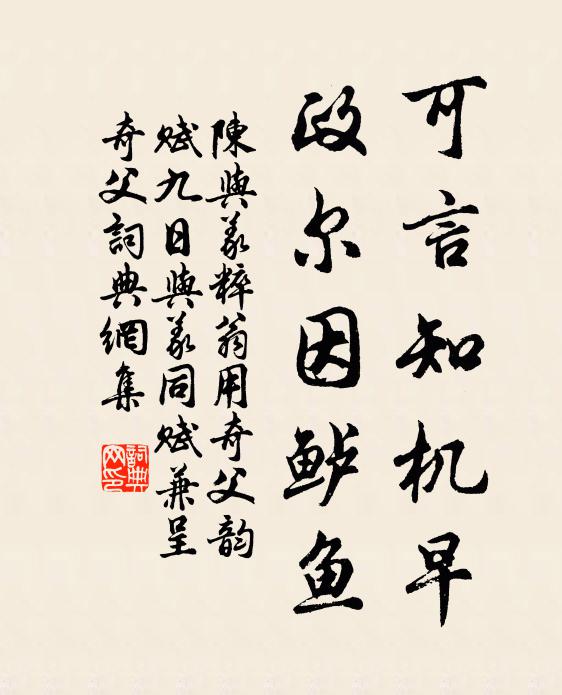 可言知机早
政尔因鲈鱼
陳與義粹翁用奇父韵
赋九日與義同赋兼呈
奇父詞典網集
詞典網印